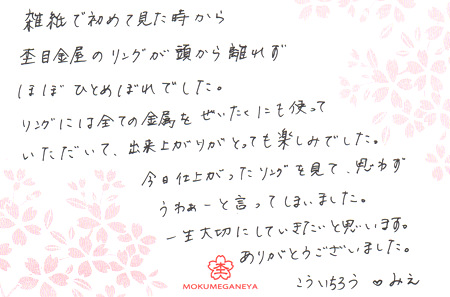 雑紙で初めて見た時から
杢目金屋のリングが頭から離れず
ほぼひとめぼれでした。
リングには全ての金属をぜいたくにも使って
いただいて、出来上がりがとっても楽しみでした。
今日仕上がったリングを見て、思わず
うわぁーと言ってしまいました。
一生大切にしていきたいと思います。
ありがとうございました。
こういちろう ♥ みえ
杢
MOKUMEGANEYA